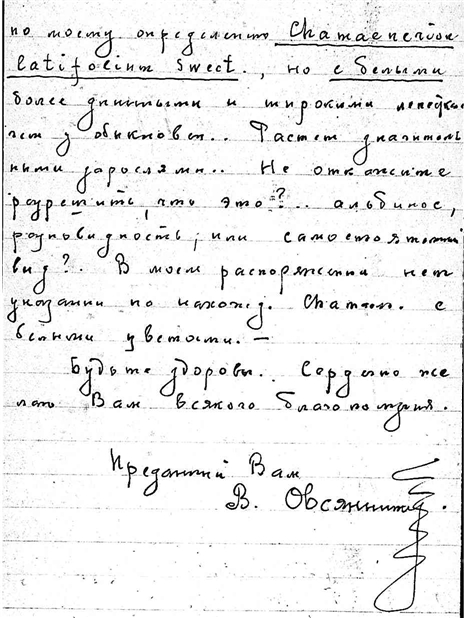 по моему определению Chamaenerion
latifolium Sweet., но с белыми
более длинными и широкими лепестк
чем у обыкновен.. Растет значитель
ными зарослями.. Не откажите
разрешить, что это?.. альбинос,
разновидность, или самостоятельный
вид?. В моем распоряжении нет
указаний по нахожд. Chamaen. с
белыми цветами. —
Будьте здоровы.. Сердечно же
лаю Вам всякого благополучия.
Преданный Вам
В. Овсянников.